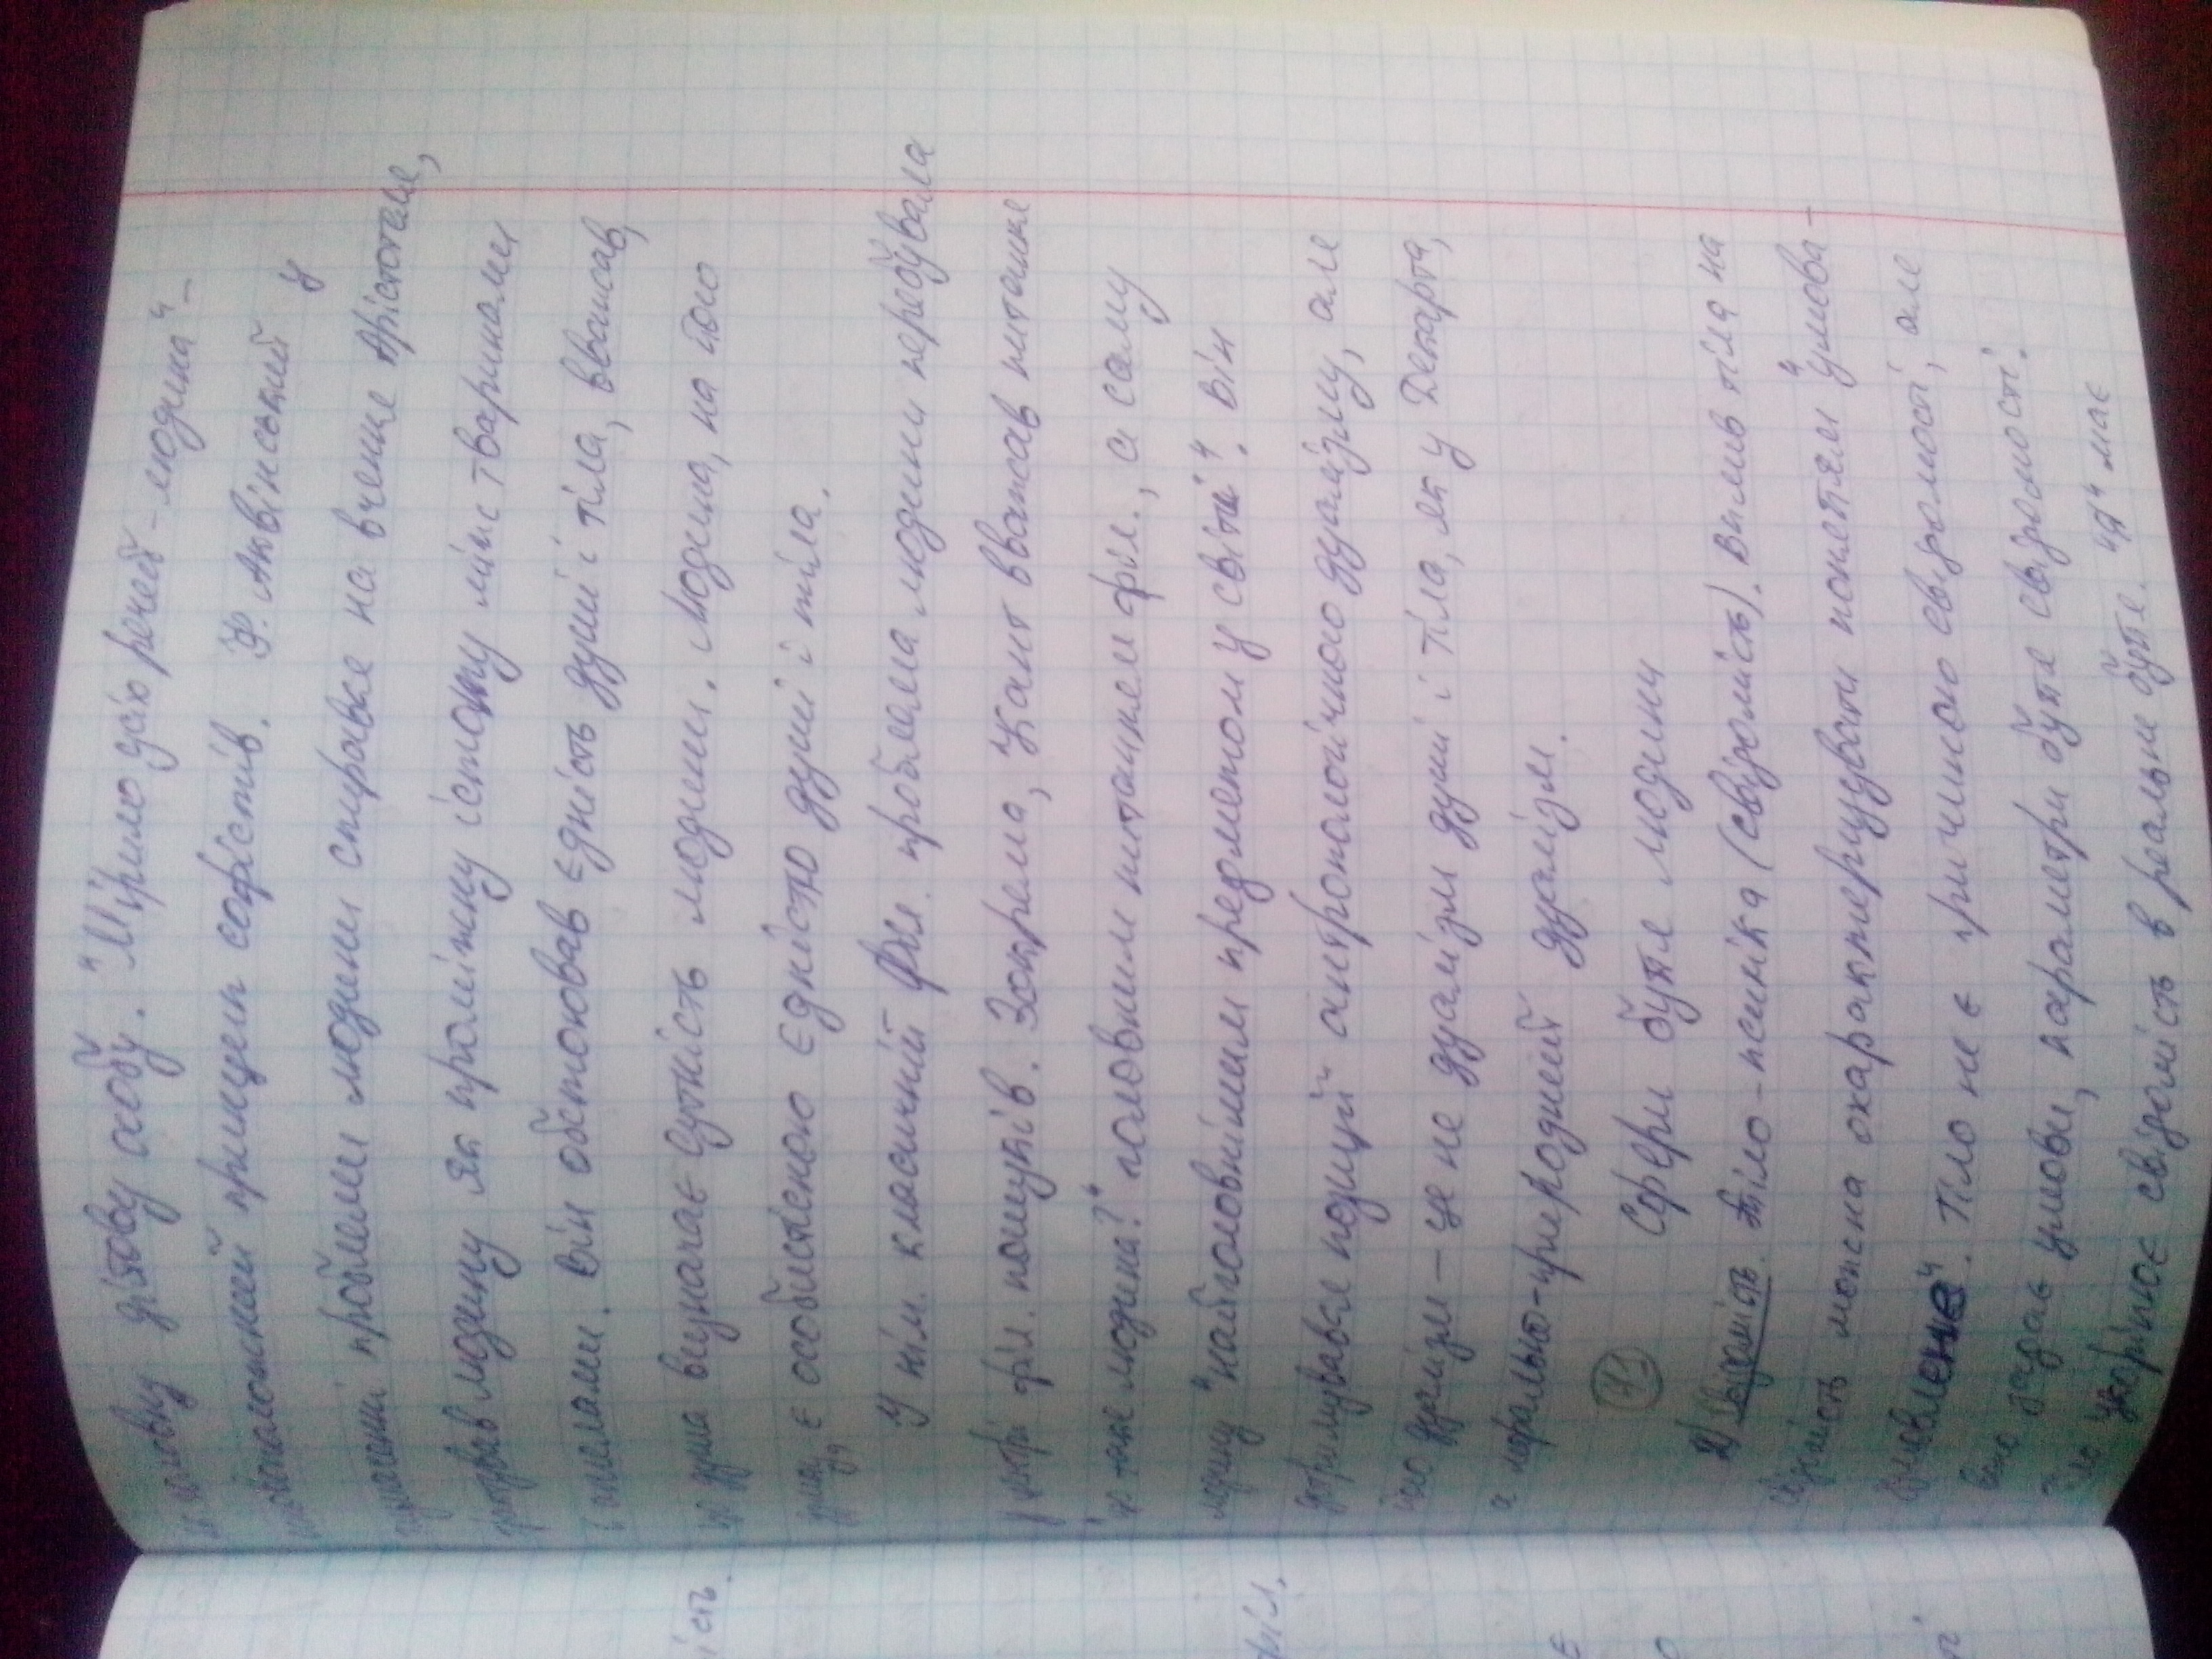 як головну дійову особу. "Мірило усіх речей - людина" -
основоположний принцип софістів. Ф. Аквінський у
тлумаченні проблеми людини спирався на вчення Арістотеля,
трактував людину як проміжну істоту між тваринами
і ангелами. Він обстоював єдність душі і тіла, вважав,
що душа визначає сутність людини. Людина, на його
думку, є особистісною єдністю душі і тіла.
У нім. класичній філ. проблема людини перебувала
у центрі філ. пошуків. Зокрема, Кант вважав питання
"що таке людина?" головним питанням філ., а саму
людину "найголовнішим предметом у світі". Він
дотримувався позиції антропологічного дуалізму, але
його дуалізм - це не дуалізм душі і тіла, як у Декарта,
а морально-природний дуалізм.
Сфери буття людини
2) Свідомість. Тіло - психіка (свідомість). Вплив тіла на
свідомість можна охарактеризувати поняттям "умова -
зумовлене". Тіло не є причиною свідомості, але
воно задає умови, параметри буття свідомості.
Тіло укорінює свідомість в реальне буття. "Я" має
ість
філ.
є
о